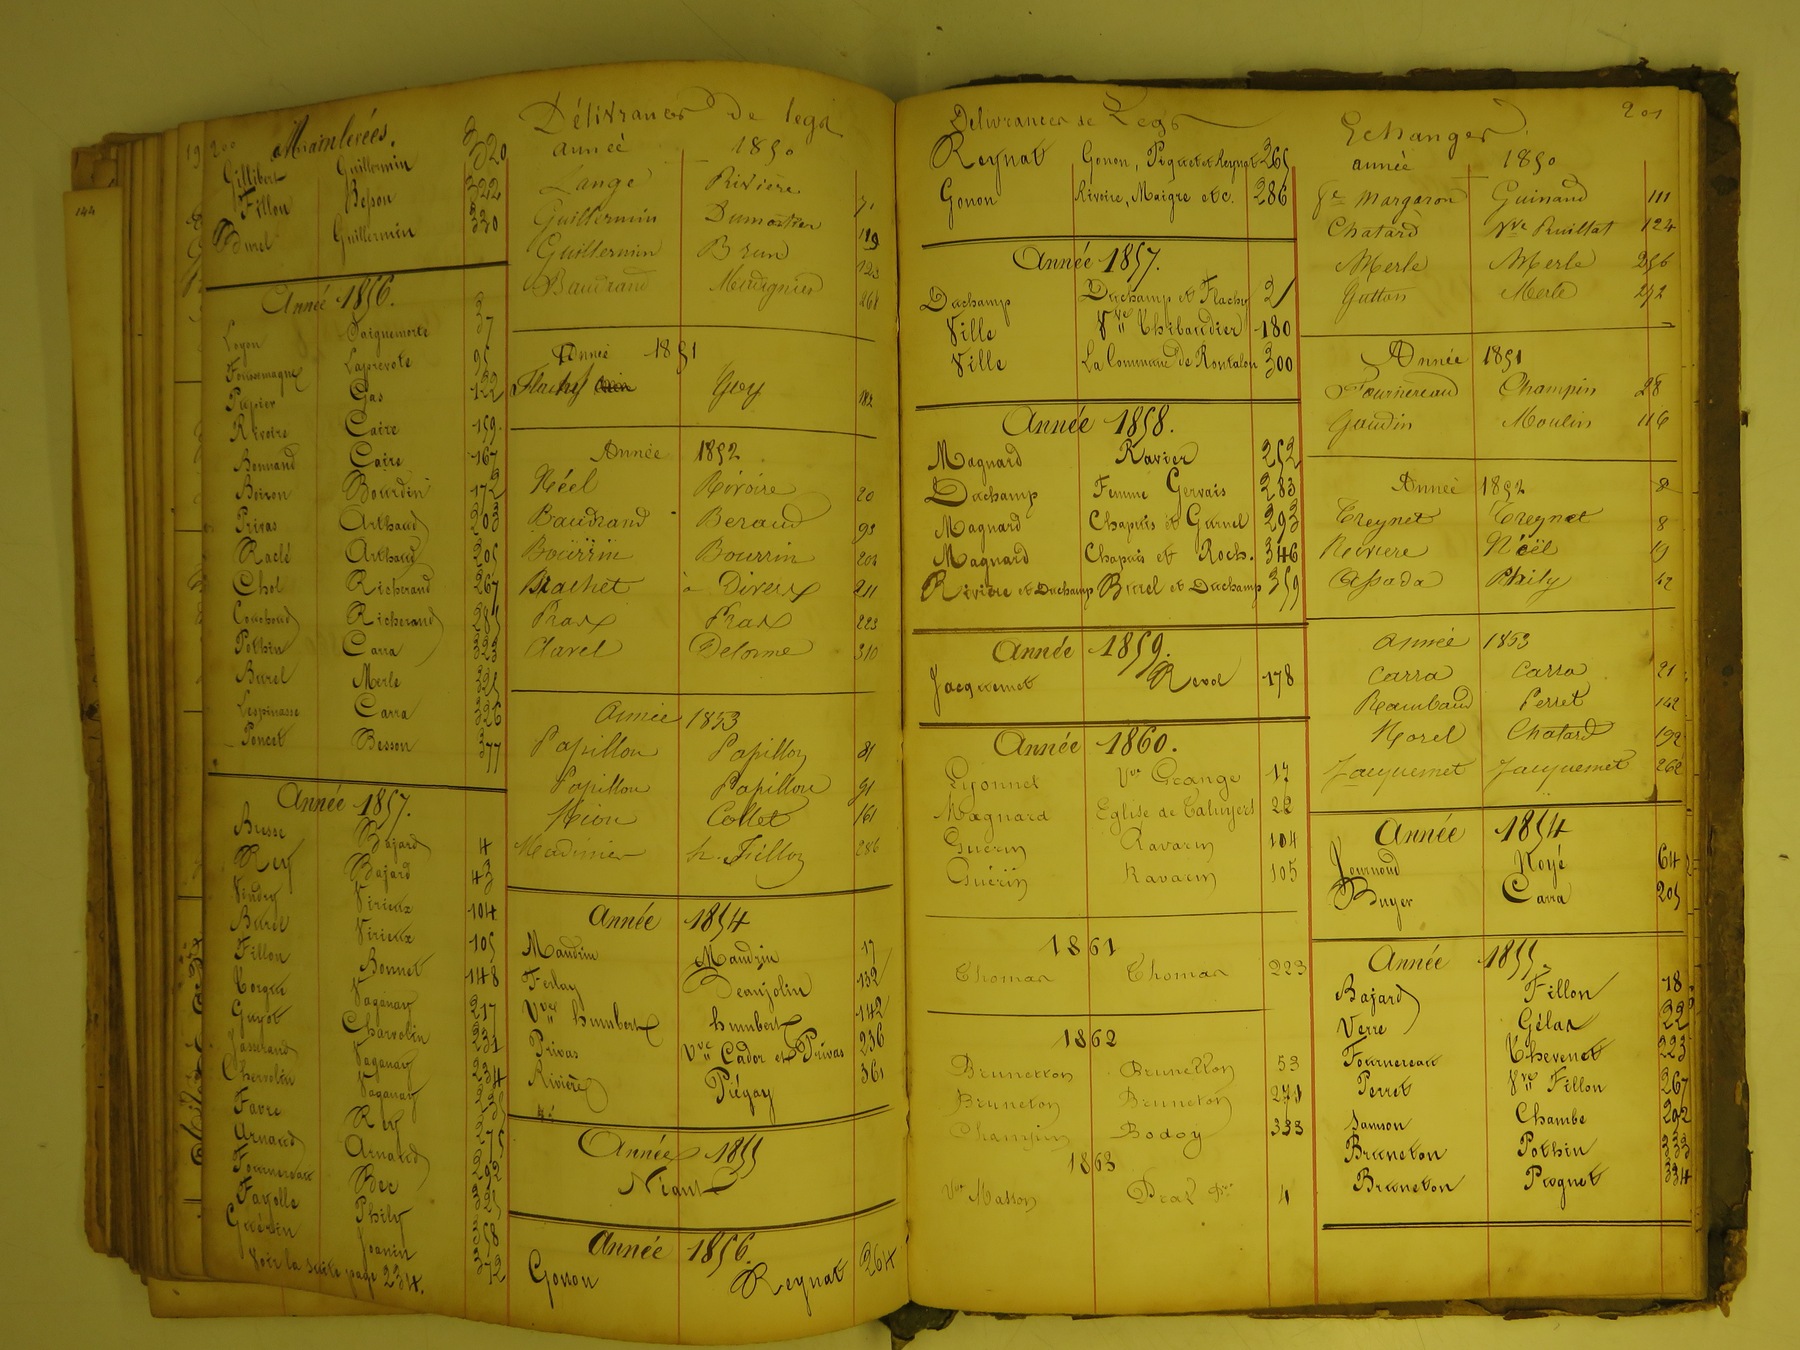 200 Mainlevées.
Gillibert Guillermin 320
Fillon Besson 322
Burel Guillermin 330
Année 1856.
Loyon Daiguemorte 3
Foussemagne Laprevote 37
Pupier Gas 95
Rivoire Caire 159
Bonnand Caire 167
Boiron Bourdin 172
Privas Arthaud 203
Raclé Arthaud 205
Chol Richerand 267
Couchoud Richerand 281
Pothin Carra 323
Burel Merle 325
Lespinasse Carra 326
Poncet Besson 377
Année 1857.
Bresse Bajard 4
Rey Bajard 43
Vindry Virieux 104
Burel Virieux 105
Fillon Bonnet 148
Vaganay 217
Guyot Charvolin 231
Jasserand Vaganay 234
Chervolin Vaganay
Favre Rey
Arnaud Arnaud
Fournereau Bec
Fayolle Phily
Guérin Joanin
Voir la suite page 234.
Délivrances De legs
année 1850
Lange Rivière 71
Guillermin Dumortier 119
Guillermin Brun 123
Baudrand Meurgnier 268
Année 1851
Flachy Guy 182
Année 1892
Néel Rivoire 20
Baudrand Beraud 93
Bourrin Bourrin 204
Brachet à Divers 211
Pras Pras 223
Clavel Delorme 310
Année 1853
Papillon Papillon 81
Papillon Papillon 91
Collet 161
Fillon 286
Année 1854
Maudrin Maudrin 17
Ferlay Deaujolin 132
Vve humbert humbert 142
Privas Vve Cador et Privas 236
Rivière Piégay 361
Année 1855
Néant
Année 1856.
Gonon Reynat 264
Délivrances de Legs
Reynat Gonon, Piquet et Reynat 265
Gonon Rivoire, Maigre etc. 286
Année 1857.
Duchamp Duchamp et Flachy 21
Ville Vve Thibaudier 180
Ville La Commune De Rontalon 300
Année 1858.
Magnard Ravier 252
Duchamp Femme Gervais 283
Magnard Chapuis et Gurnel 293
Magnard Chapuis et Roch. 346
Rivière et Duchamp Burel et Duchamp 359
Année 1859.
Jacquemet Revol 178
Année 1860.
Lyonnet Vve Grange 17
Magnard Eglise de Taluyers 22
Guérin Ravarin 104
Guérin Ravarin 105
1861
Thomas Thomas 223
1862
Bruneton Bruneton 53
Bruneton Bruneton 271
Champin Bodoy 333
1863
Vve Masson 4
201
Echanges
année 1850
Margaron Guinand 111
Chatard Vve Pruillat 124
Merle Merle 256
Gutton Merle 292
Année 1851
Fournereau Champin 28
Gaudin Moulin 116
Année 1852 8
Treynet Treynet 8
Riviere Néël 19
Assada Phily 42
Année 1853
Carra Carra 21
Rambaud Perret 142
Morel Chatard 192
Jacquemet Jacquemet 262
Année 1854
Journoud Noyé 64
Buyer Carra 205
Année 1855
Bajard Fillon 18
Verre Gélas 22
Fournereau Thevenet 223
Perret Vve Fillon 267
Samson Chambe 292
Bruneton Pothin 333
Bruneton Pregnet 334